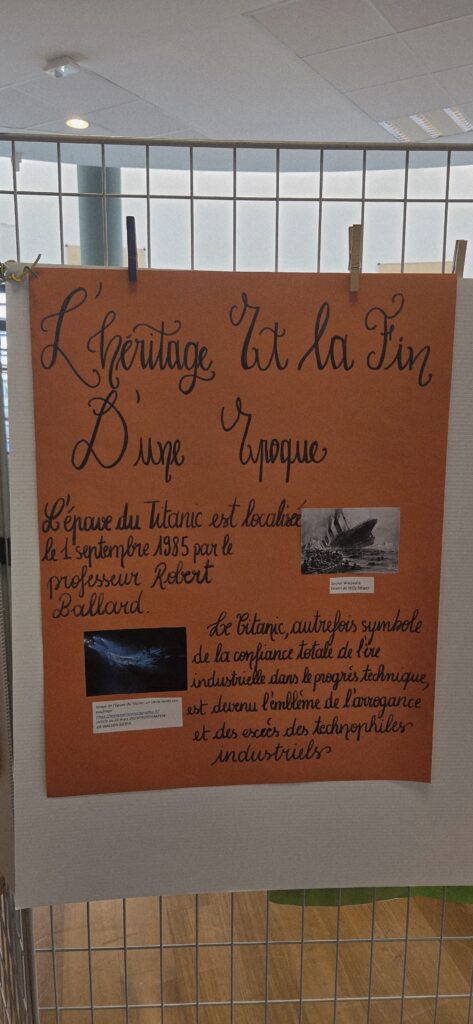 L'héritage Et la Fin
D'une Epoque
L'épave du Titanic est localisée
le 1 septembre 1985 par le
professeur Robert
Ballard.
Source: Wikipedia
Dessin de Willy Stöwer
Le Titanic, autrefois symbole
de la confiance totale de l'ère
industrielle dans le progrès technique,
est devenu l'emblème de l'arrogance
et des excès des technophiles
industriels
Image de l'épave du Titanic, un siècle après son
naufrage